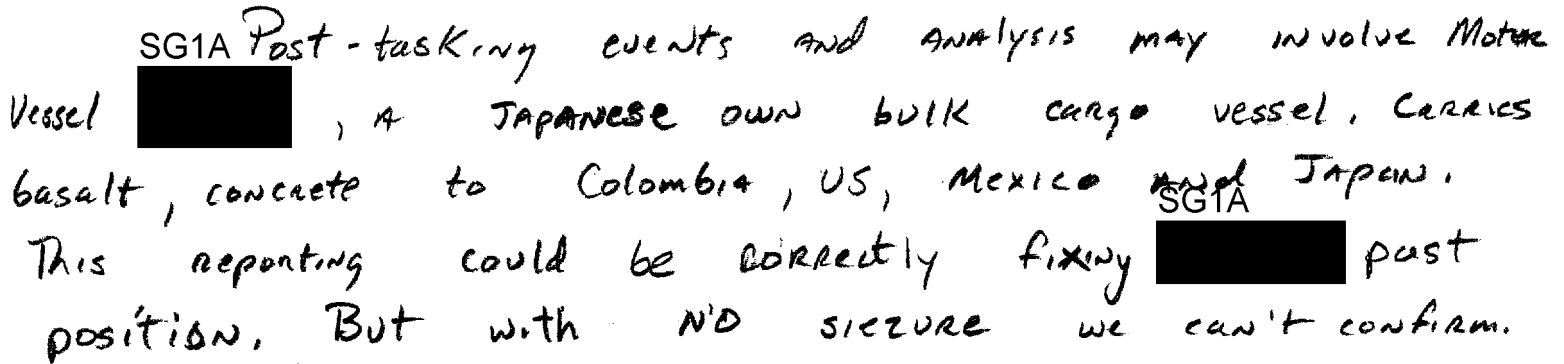 SG1A Post-tasking events and analysis may involve Motor
Vessel , a Japanese own bulk cargo vessel. Carries
basalt, concrete to Colombia, US, Mexico and Japan.
SG1A
This reporting could be correctly fixing past
position. But with no siezure we can't confirm.